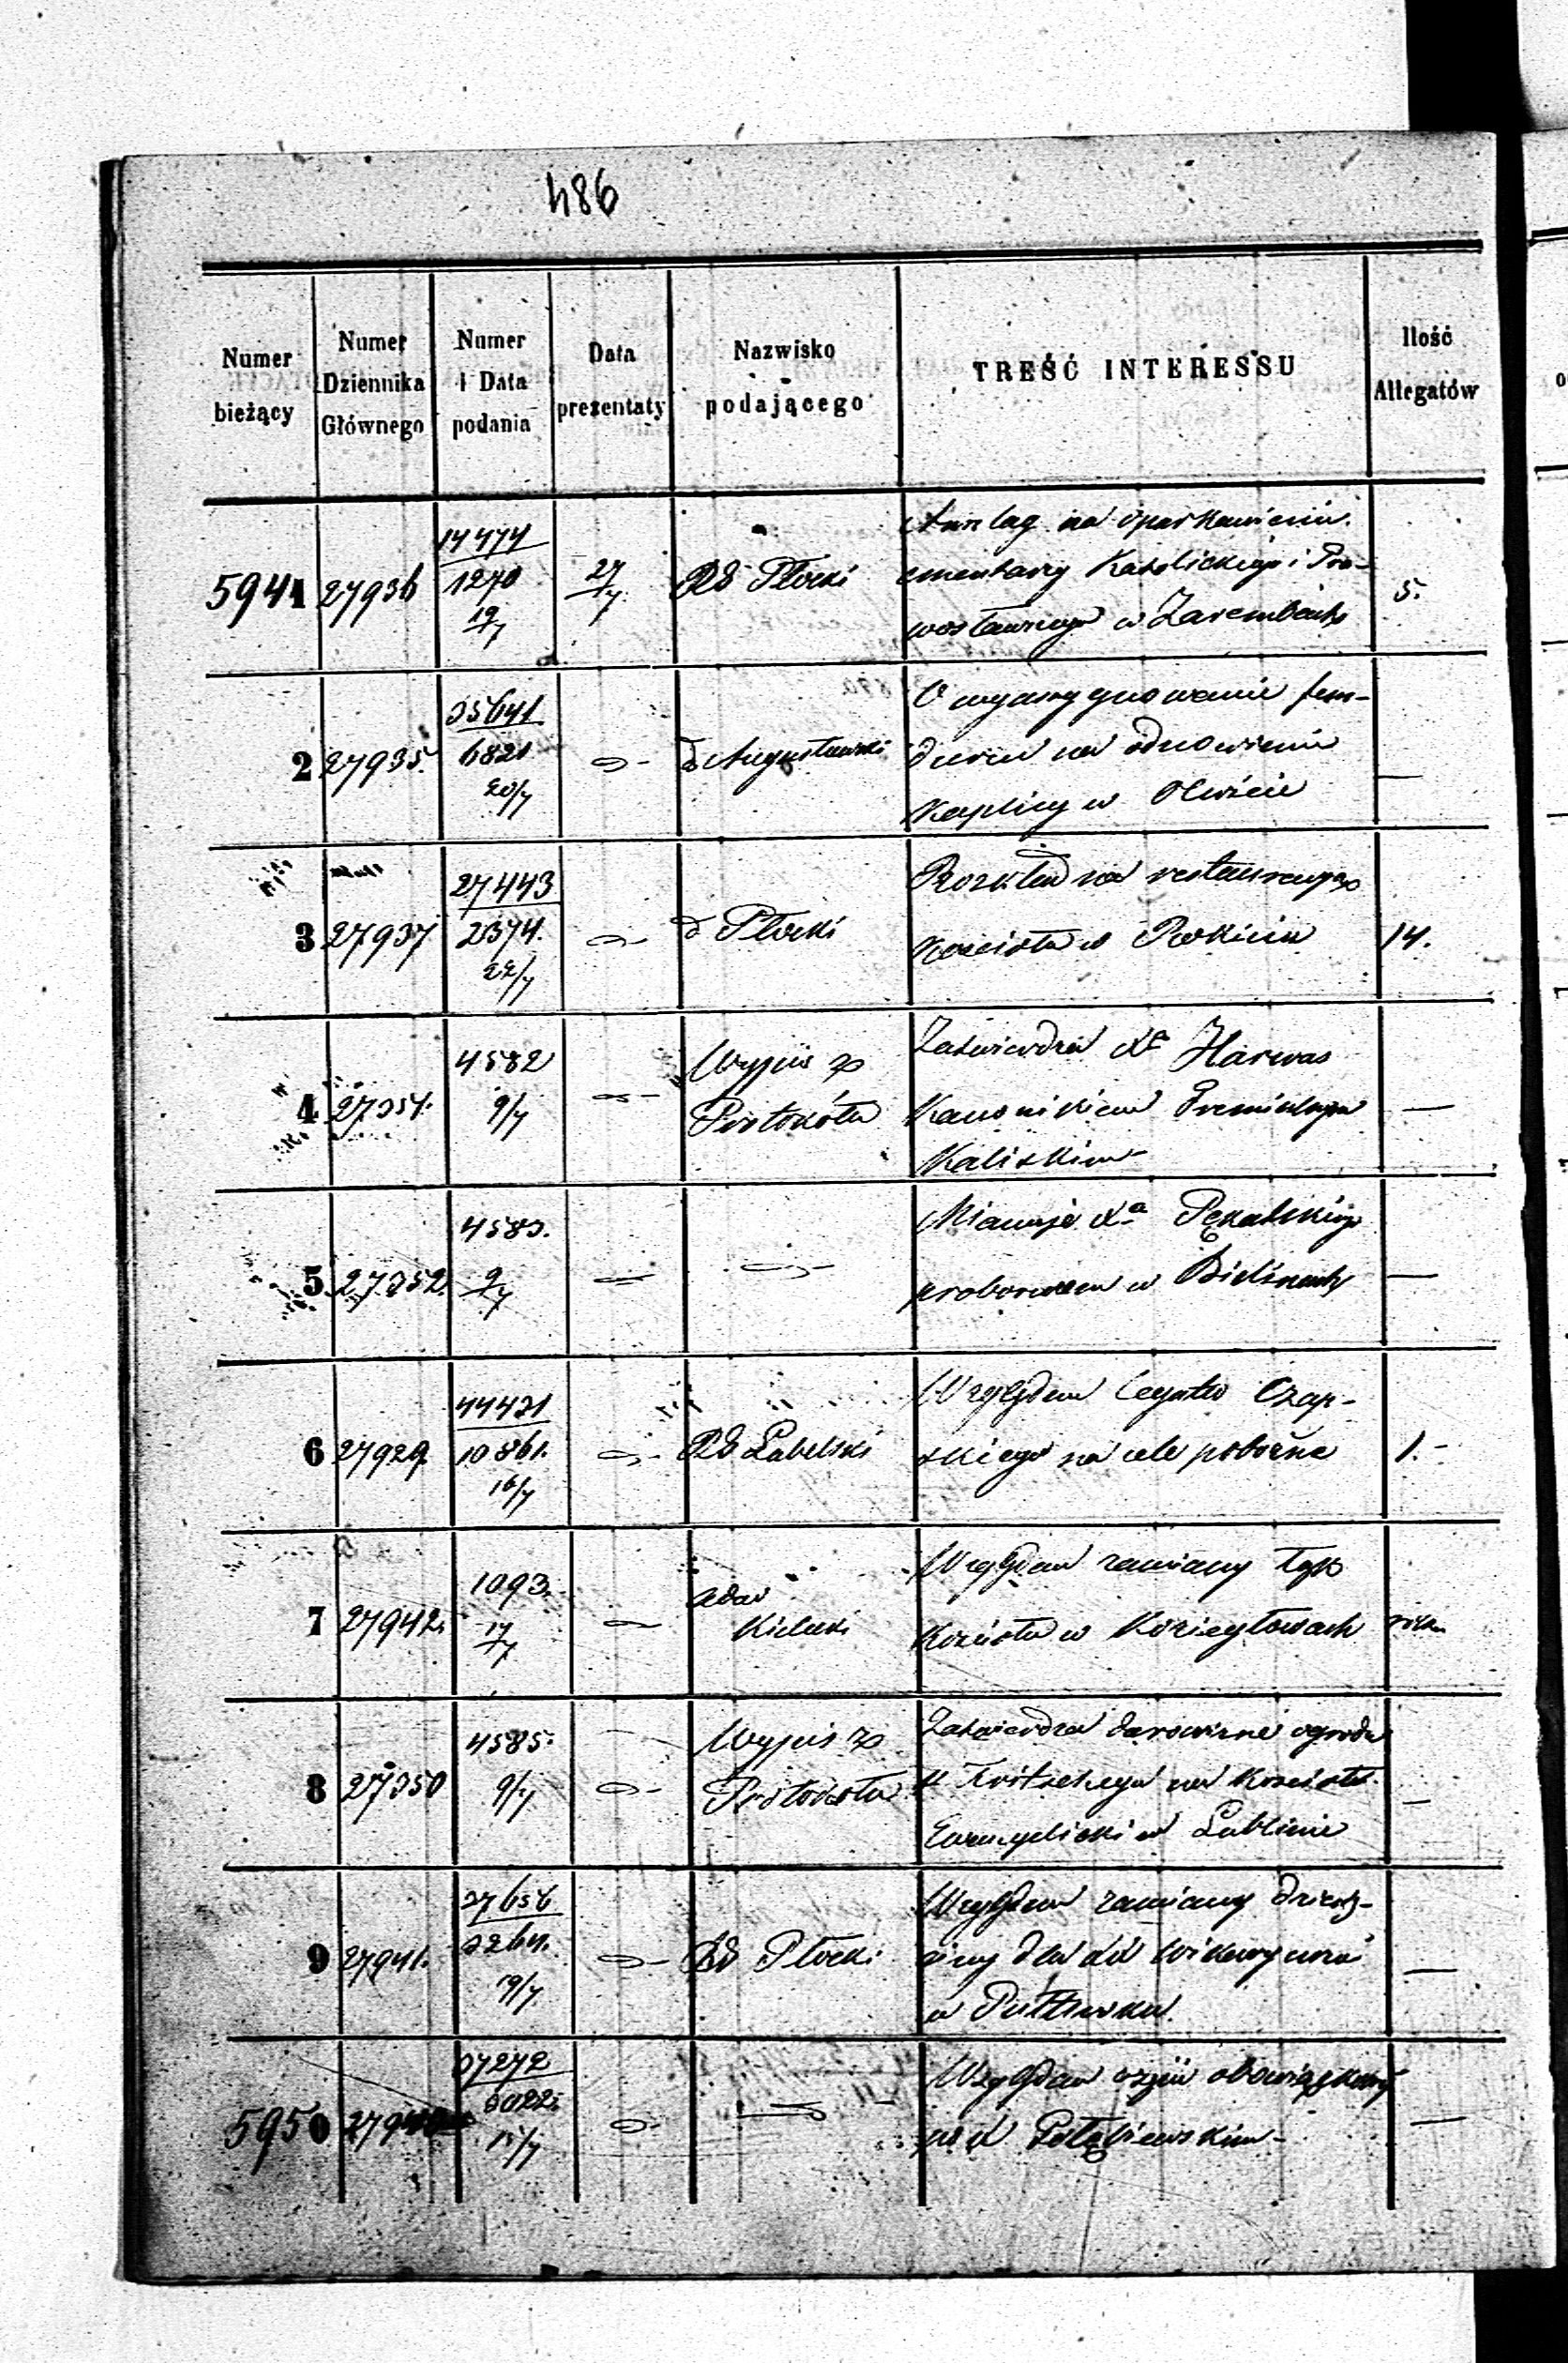 486
Numer bieżący
Numer Dziennika Głównego
Numer i Data podania
Data prezentaty
Nazwisko podającego
TREŚĆ INTERESSU
Ilość Allegatów
5941 27936 14474 1270 19/7 27/7 Rd Płocki 5.
Anszlag na oparkanienie
cmentarzy Katolickiego i Pra-
wosławnego w Zarembach
2 27935 35641 6821 20/7 d Augustowski —
O wyassygnowanie fun-
duszu na odnowienie
Kaplicy w
3 27937 27443 2374. 22/7 d Płocki 14.
Rozkład na restauracyą
Kościoła w Rokiciu
4 27351. 4582 9/7 Wypis z Protokółu —
Zatwierdza Xa Harwas
Kanonikiem Gremialnym
Kaliskim
5 27352. 4583. 9/7 —
Mianuje Xa Pękalskiego
proboszczem w Bielinach
6 27929 44431 10861. 16/7 Rd Lubelski 1.-
Względem legatu Czap-
skiego na cele pobożne
7 27942. 1093. 17/7 Adm Kielecki
Względem zamiany łąk
Kościoła w Koziegłowach
8 27350 4585. 9/7 Wypis z Protokółu —
Zatwierdza darowiznę ogrodu
Fritschego na Kościół
Ewangelicki w Lublinie
9 27941. 37656 3264. 19/7 Rd Płocki —
Względem zamiany dzie-
ciny dla XX Wikaryuszów
w Pułtusku.
5950 37272 3022. 15/7 —
Względem czyii obowiązków
po X Gołębiewskim